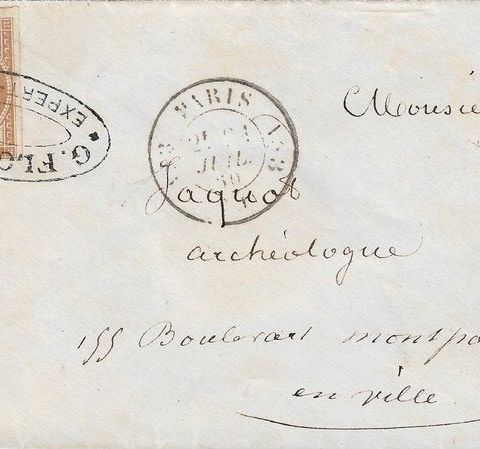 Monsie
PARIS
JUIL.
Jaquot
archéologue
155 Boulevart montpa
en ville
G. FLO
EXPERT